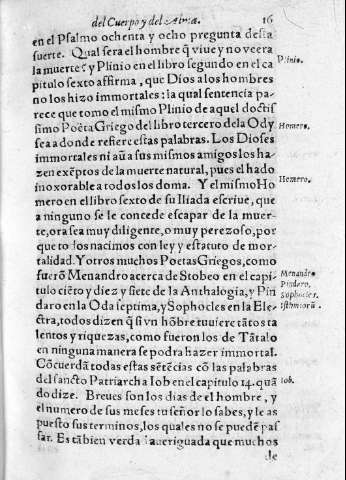 del Cuerpo y del Alma.
16
en el Psalmo ochenta y ocho pregunta desta
suerte. Qual sera el hombre q̃ viue y no veera
la muerte? y Plinio en el libro segundo en el ca
Plinio.
pitulo sexto affirma, que Dios a los hombres
no los hizo immortales: la qual sentencia pa-
rece que tomo el mismo Plinio de aquel doctis
simo Poëta Griego del libro tercero dela Ody
Homero.
sea a donde refiere estas palabras. Los Dioses
immortales ni aũ a sus mismos amigos los ha-
zen exẽptos de la muerte natural, pues el hado
inoxorable a todos los doma. Y el mismo Ho
Homero.
mero en el libro sexto de su Iliada escriue, que
a ninguno se le concede escapar de la muer-
te, ora sea muy diligente, o muy perezoso, por
que todos nacimos con ley y estatuto de mor-
talidad. Y otros muchos Poetas Griegos, como
fuerõ Menandro acerca de Stobeo en el capi
Menandro
tulo ciẽto y diez y siete de la Anthalogia, y Pin
Pindaro,
daro en la Oda septima, y Sophocles en la Ele
Sophocles.
ctra, todos dizen q̃ si vn hõbre tuuiere tãtos ta
Isthmiorũ.
lentos y riquezas, como fueron los de Tãtalo
en ninguna manera se podra hazer immortal.
Cõcuerdã todas estas sẽtẽcias cõ las palabras
del sancto Patriarcha Iob en el capitulo 14. quã
Iob.
do dize. Breues son los dias de el hombre, y
el numero de sus meses tu señor lo sabes, y le as
puesto sus terminos, los quales no se puedẽ pas
sar. Es tãbien verda aueriguada que muchos
de